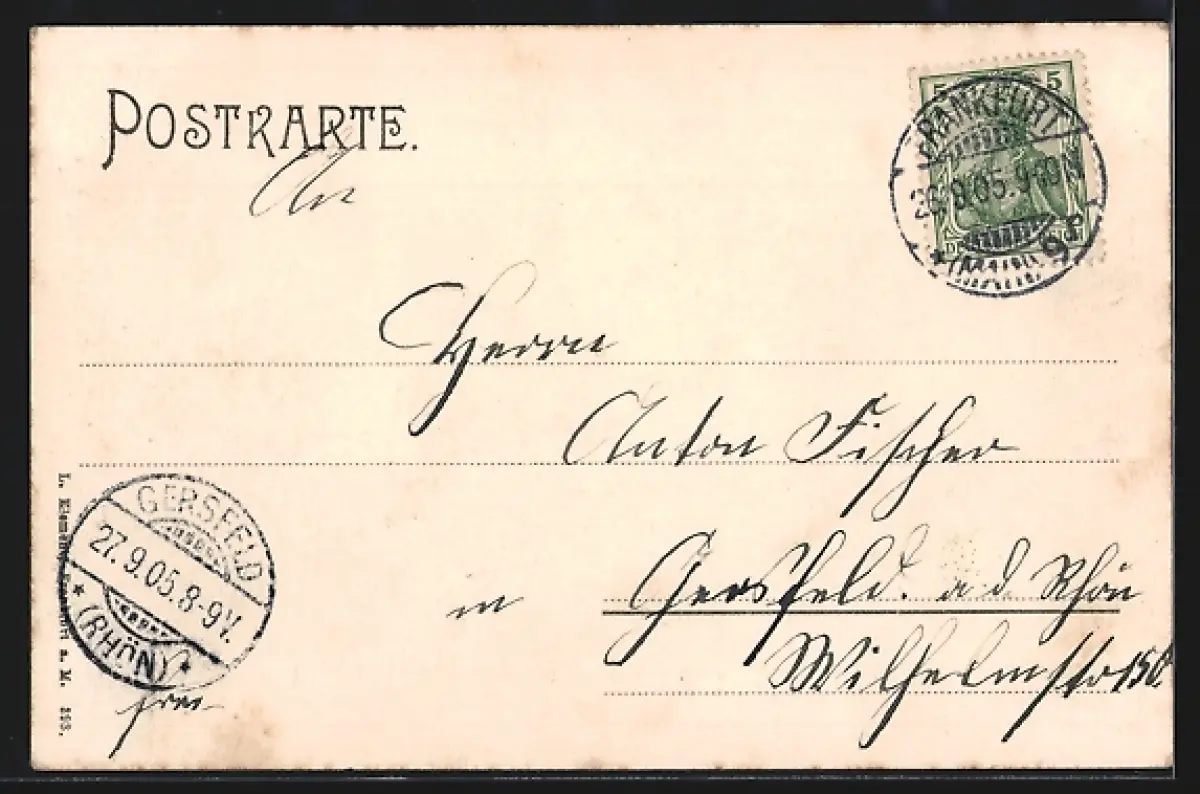 POSTKARTE.
An
5 5
FRANKFURT
26.9.05.9-10N
*(MAIN) 9r
Herrn
Anton Fischer
in Gersfeld. a d Rhön
Wilhelmstr
GERSFELD
27.9.05.8-9V.
*(RHÖN)*
frei
L. Klement, Frankfurt a. M.